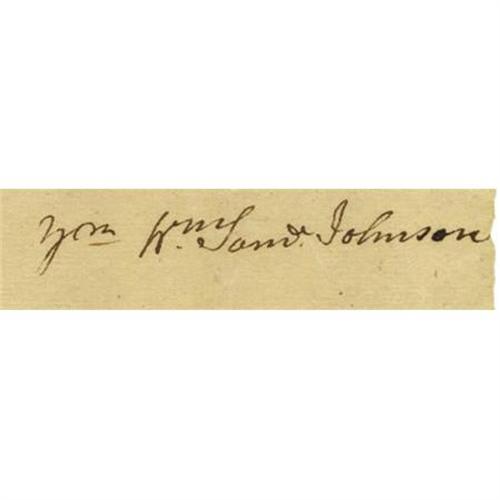 Wm. Saml. Johnson